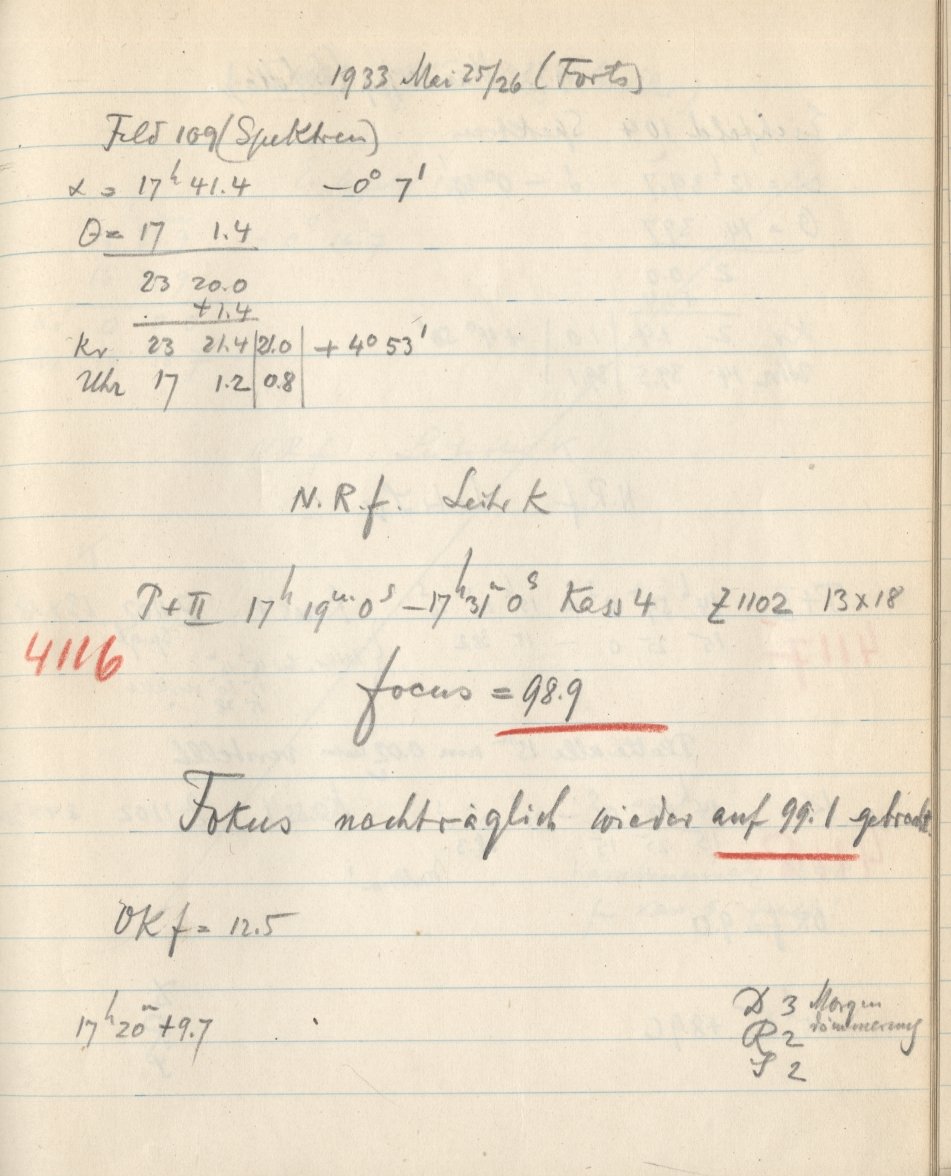 1933 Mai 25/26 (Forts)
Feld 109 (Spektren)
α = 17ʰ 41.4 −0° 7'
θ = 17 1.4
23 20.0
+1.4
Kr 23 21.4 | 21.0 | + 4° 53'
Uhr 17 1.2 | 0.8 |
N.R.f. Leitr K
P+II 17ʰ 19ᵐ 0ˢ − 17ʰ 31ᵐ 0ˢ Kass 4 Z 1102 13 x 18
4116
focus = 98.9
Fokus nachträglich wieder auf 99.1 gebracht
OKf = 12.5
17ʰ 20ᵐ +9.7
D 3 Morgen
dämmerung
R 2
S 2